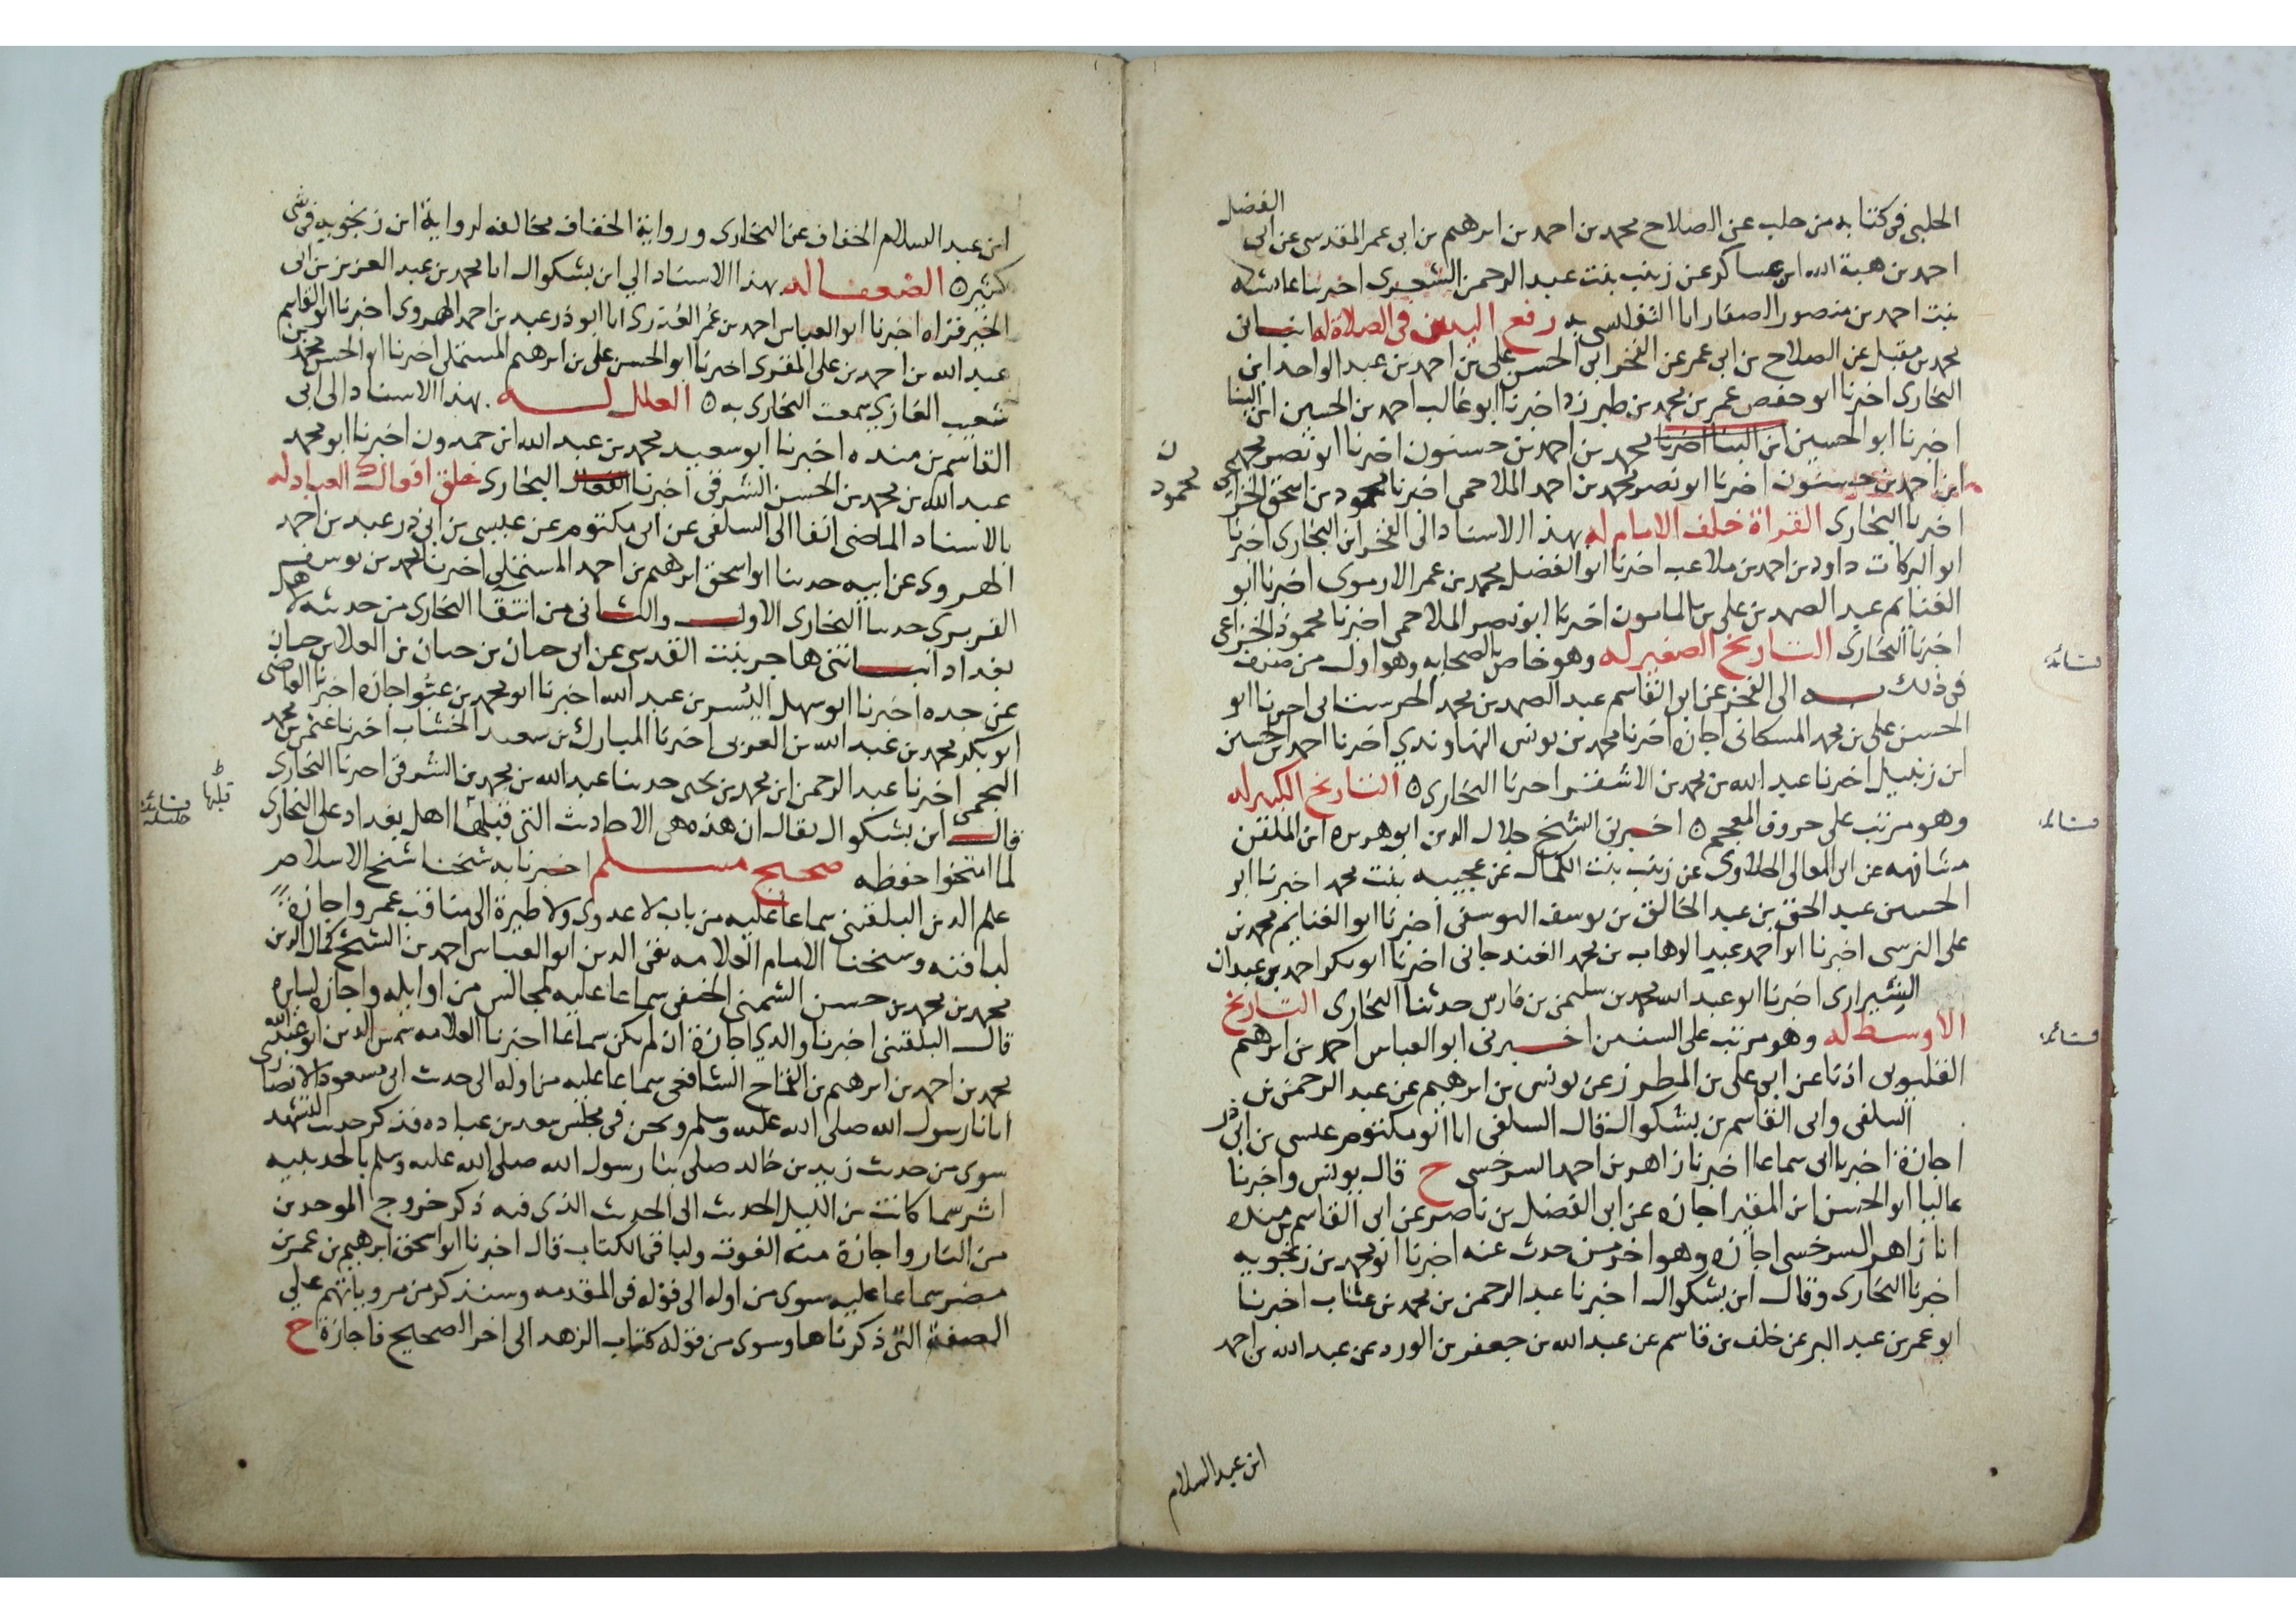 الحلبى فى كتابه من حلب عن الصلاح محمد بن احمد بن ابرهيم بن ابى عمر المقدسى عن ابى الفضل
احمد بن هبة الله ابن عساكر عن زينب بنت عبد الرحمن الشعرى اخبرتنا عائشه
بنت احمد بن منصور الصفار انا به رفع اليدين فى الصلاة له انبانى
محمد بن مقبل عن الصلاح بن ابى عمر عن الفخر ابى الحسن على بن احمد بن عبد الواحد ابن
البخارى اخبرنا ابو حفص عمر بن محمد بن طبرزد اخبرنا ابو غالب احمد بن الحسين ابن البنا
اخبرنا ابو الحسين ابن البنا اخبرنا محمد بن احمد بن حسنون اخبرنا ابو نصر محمد
ابن احمد بن حسنون اخبرنا ابو نصر محمد بن احمد الملاحمى اخبرنا محمود بن اسحق الخزاعى
ن
محمود
اخبرنا البخارى القراة خلف الامام له بهذا الاسناد الى الفخر ابن البخارى اخبرنا
ابو البركات داود بن احمد بن ملاعب اخبرنا ابو الفضل محمد بن عمر الارموى اخبرنا ابو
الغنايم عبد الصمد بن على بن المامون اخبرنا ابو نصر الملاحمى اخبرنا محمود الخزاعى
اخبرنا البخارى التاريخ الصغير له وهو خاص بالصحابه وهو اول من صنف
فى ذلك به الى الفخر عن ابو القاسم عبد الصمد بن محمد الحرستانى اخبرنا ابو
الحسن على بن محمد المسكانى اجازه اخبرنا محمد بن يونس النهاوندي اخبرنا احمد بن الحسين
ابن زنبيل اخبرنا عبد الله بن محمد بن الاشقر اخبرنا البخارى ه التاريخ الكبير له
وهو مرتب على حروف المعجم ه اخبرنى الشيخ جلال الدين ابو هريره ابن الملقن
مشافهه عن ابى المعالى الحلاوى عن زينب بنت الكمال عن عجيبه بنت محمد اخبرنا ابو
الحسين عبد الحق بن عبد الخالق بن يوسف اليوسفى اخبرنا ابو الغنايم محمد بن
على النرسى اخبرنا ابو احمد عبد الوهاب بن محمد الغندجانى اخبرنا ابو بكر احمد بن عبدان
الشيرازى اخبرنا ابو عبد الله محمد بن سليمن بن فارس حدثنا البخارى التاريخ
الاوسط له وهو مرتب على السنين اخبرنى ابو العباس احمد بن ابرهيم
القليوبى اذنا عن ابى على بن المطرز عن يونس بن ابرهيم عن عبد الرحمن بن
السلفى وابى القاسم بن بشكوال قال السلفى انا ابو مكتوم عيسى بن ابى ذر
اجازة اخبرنا ابى سماعا اخبرنا زاهر بن احمد السرخسى ح قال يونس واخبرنا
عاليا ابو الحسن ابن المقير اجازه عن ابى الفضل بن ناصر عن ابى القاسم بن منده
انا زاهر السرخسى اجازه وهو اخر من حدث عنه اخبرنا ابو محمد بن زنجويه
اخبرنا البخارى وقال ابن بشكوال اخبرنا عبد الرحمن بن محمد بن عتاب اخبرنا
ابو عمر بن عبد البر عن خلف بن قاسم عن عبد الله بن جعفر بن الورد عن عبد الله بن احمد
ابن عبد السلام
ابن عبد السلام الخفاف عن البخارى ورواية الخفاف مخالفه لرواية ابن زنجويه فى شى
كثير ه الضعفا له بهذا الاسناد الي ابن بشكوال انا محمد بن عبد العزيز بن ابى
الخير قراه اخبرنا ابو العباس احمد بن عمر العذرى انا ابو ذر عبد بن احمد الهروى اخبرنا ابو القاسم
عبد الله بن احمد بن على المقرى اخبرنا ابو الحسن على بن ابرهيم المستملى اخبرنا ابو الحسن محمد بن
شعيب الغازي سمعت البخارى به ه العلل له بهذا الاسناد الى ابى
القاسم بن منده اخبرنا ابو سعيد محمد بن عبد الله ابن حمدون اخبرنا ابو محمد
عبد الله بن محمد بن الحسن الشرقى اخبرنا البخارى خلق افعال العباد له
بالاسناد الماضى انفا الى السلفى عن ابى مكتوم عن عيسى بن ابى ذر عبد بن احمد
الهروى عن ابيه حدثنا ابو اسحق ابرهيم بن احمد المستملى اخبرنا محمد بن يوسف
الفربرى حدثنا البخارى الاول والثانى من انتقا البخارى من حديثه لاهل
بغداد انبانتنى هاجر بنت القدسى عن ابى حيان بن حيان بن العلا بن حيان
عن جده اخبرنا ابو سهل اليسر بن عبد الله اخبرنا ابو محمد بن اجازه اخبرنا القاضى
ابو بكر محمد بن عبد الله بن العربى اخبرنا المبارك بن سعيد الخشاب اخبرنا محمد
اخبرنا عبد الرحمن ابن محمد بن يحيى حدثنا عبد الله بن محمد بن الشرقى اخبرنا البخارى
قال ابن بشكوال يقال ان هذه هى الاحاديث التى قلبها اهل بغداد على البخارى
لما امتحنوا حفظه صحيح مسلم اخبرنا به شيخنا شيخ الاسلام
علم الدين البلقينى سماعا عليه من باب لا عدوى ولا طيرة الى مناقب عمر واجازة
لباقيه وشيخنا الامام العلامه تقى الدين ابو العباس احمد بن الشيخ كمال الدين
محمد بن محمد بن حسن الشمنى الحنفى سماعا عليه لمجالس من اوايله واجازه لسايره
قال البلقينى اخبرنا والدي اجازة ان لم يكن سماعا اخبرنا العلامه شمس الدين ابو عبد الله
محمد بن احمد بن ابرهيم بن القماح الشافعى سماعا عليه من اوله الى حديث ابى مسعود الانصارى
اتانا رسول الله صلى الله عليه وسلم ونحن فى مجلس سعد بن عباده فذكر حديث التشهد
سوى من حديث زيد بن خالد صلى بنا رسول الله صلى الله عليه وسلم بالحديبيه
اثر سما كانت من الليل الحديث الى الحديث الذى فيه ذكر خروج الموحدين
من النار واجازة منه الفوت ولباقى الكتاب قال اخبرنا ابو اسحق ابرهيم بن عمر بن
مضر سماعا عليه سوى من اوله الى قوله فى المقدمه وسنذكر من مروياتهم على
الصفة التى ذكرناها وسوى من قوله كتاب الزهد الى اخر الصحيح فاجازة ح